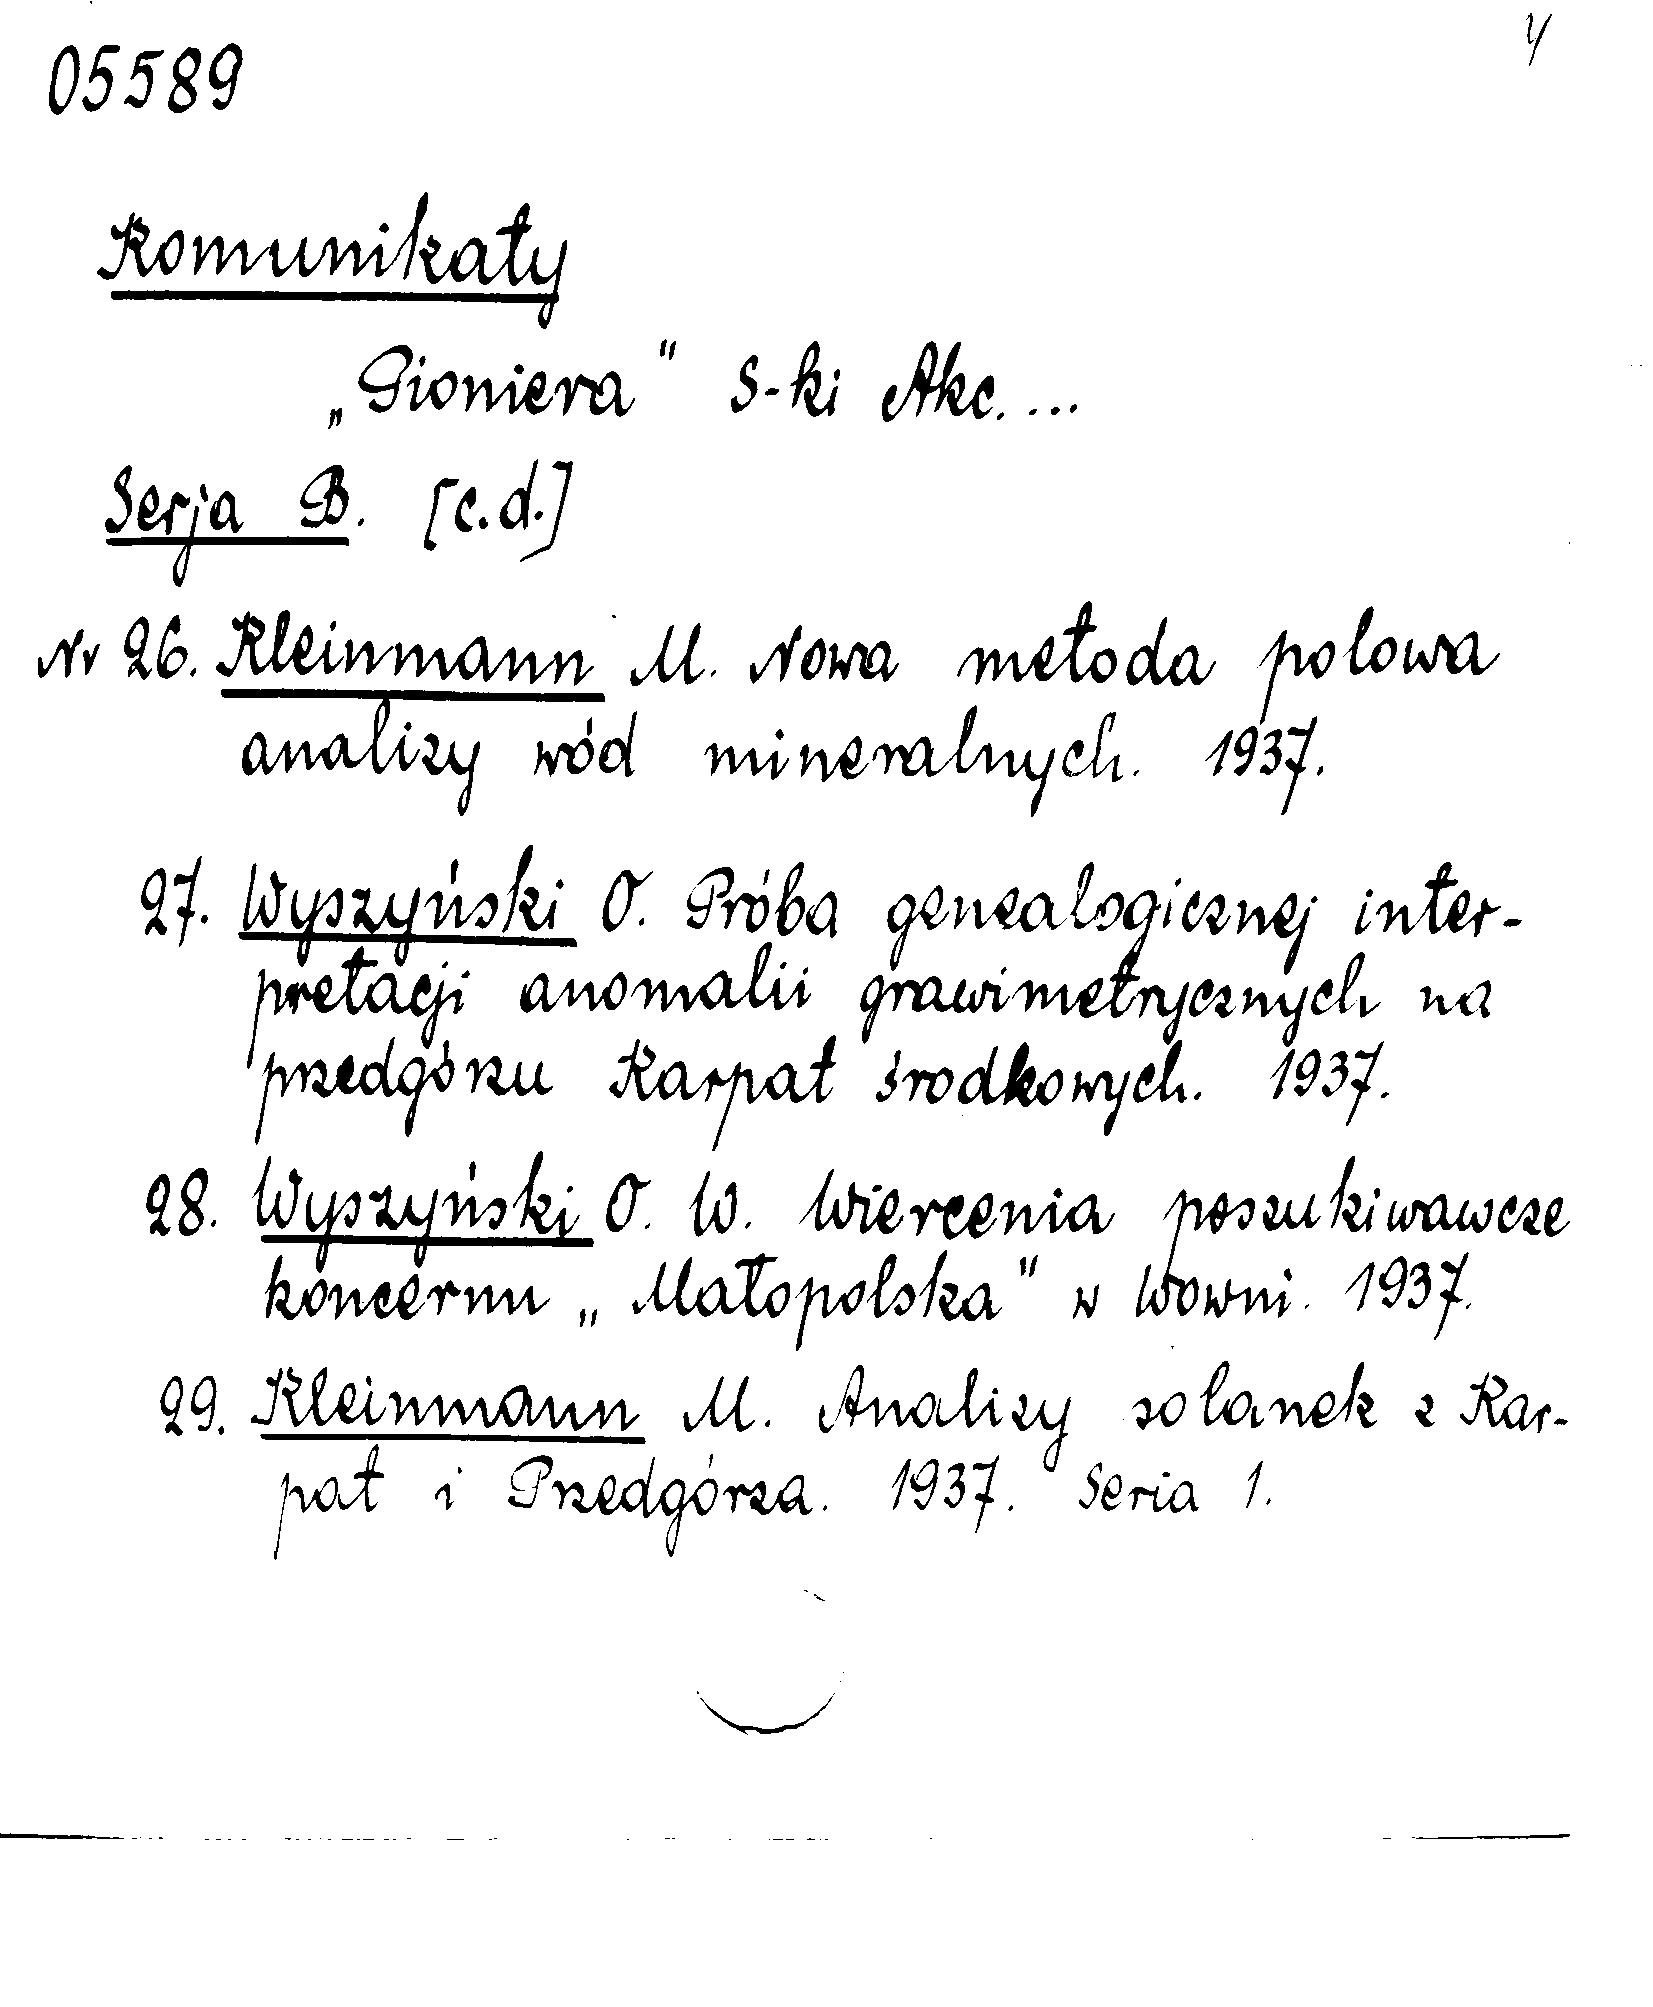 4
05589
Komunikaty
„Pioniera" S-ki Akc. ...
Serja B. [c.d.]
Nr 26. Kleinmann M. Nowa metoda polowa
analizy wód mineralnych. 1937.
27. Wyszyński O. Próba genealogicznej inter-
pretacji anomalii grawimetrycznych na
przedgórzu Karpat środkowych. 1937.
28. Wyszyński O. W. Wiercenia poszukiwawcze
koncernu „Małopolska" w Wowni. 1937.
29. Kleinmann M. Analizy solanek z Kar-
pat i Przedgórza. 1937. Seria 1.